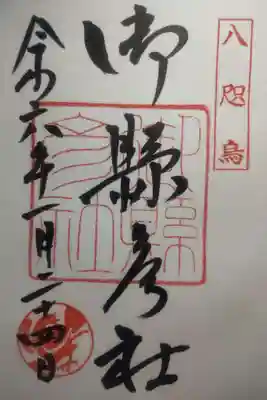 八咫烏
御縣彦社
令和六年一月二十四日
御縣
彦社